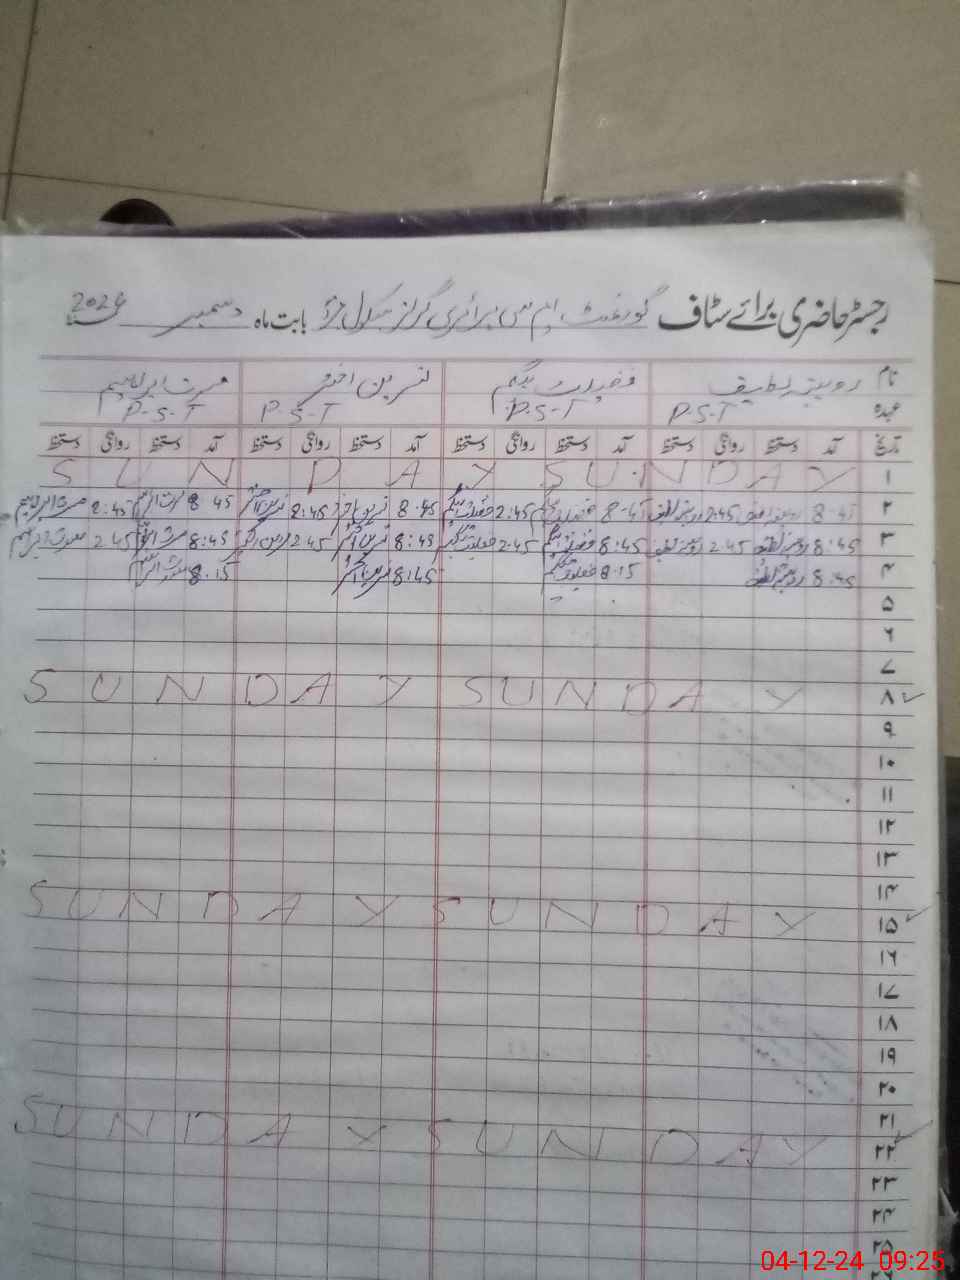 رجسٹر حاضری برائے سٹاف گورنمنٹ ایم سی پرائمری گرلز سکول بابت ماہ دسمبر 2024
نام روبینہ لطیف فضیلت بیگم نسرین اختر مسرت ابراہیم
عہدہ P.S.T P.S.T P.S.T P.S.T
تاریخ آمد دستخط روانگی دستخط آمد دستخط روانگی دستخط آمد دستخط روانگی دستخط آمد دستخط روانگی دستخط
۱ SUNDAY SUNDAY
۲ 8-45 روبینہ لطیف 2:45 روبینہ لطیف 8-45 فضیلت بیگم 2:45 فضیلت بیگم 8-45 نسرین اختر 2:45 نسرین اختر 8 45 مسرت ابراہیم 2:45 مسرت ابراہیم
۳ 8:45 روبینہ لطیف 2-45 روبینہ لطیف 8:45 فضیلت بیگم 2-45 فضیلت بیگم 8:45 نسرین اختر 2-45 نسرین اختر 8:45 مسرت ابراہیم 2-45 مسرت ابراہیم
۴ 8:45 روبینہ لطیف 8-15 فضیلت بیگم 8:45 نسرین اختر 8.15 مسرت ابراہیم
۵
۶
۷
۸ SUNDAY SUNDAY
۹
۱۰
۱۱
۱۲
۱۳
۱۴
۱۵ SUNDAY SUNDAY
۱۶
۱۷
۱۸
۱۹
۲۰
۲۱
۲۲ SUNDAY SUNDAY
۲۳
۲۴
۲۵
04-12-24 09:25